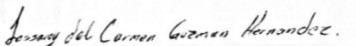 Jessary del Carmen Guzman Hernandez.